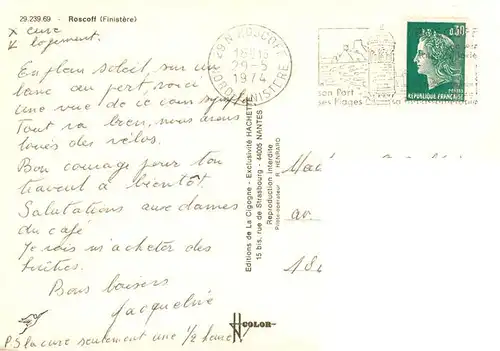 29.239.69 - Roscoff (Finistère)
x cure
x logement.
En plein soleil, sur un
banc au port, voici
une vue de ic vous
Tout va bien, nous avons
loués des vélos.
Bon courage pour ton
travail à bientôt.
Salutations aux dames
du café
Je vais m'acheter des
Bons baisers
Jacqueline
P.S la cure seulement une 1/2 heure
Editions de La Cigogne - Exclusivité HACHETTE
15 bis, rue de Strasbourg - 44005 NANTES
Reproduction interdite
R. HENRARD
COLOR
29 N ROSCOFF
18H
29-5
1974
NORD FINISTERE
son Port
ses Plages
0,30
POSTES
REPUBLIQUE FRANÇAISE
av.